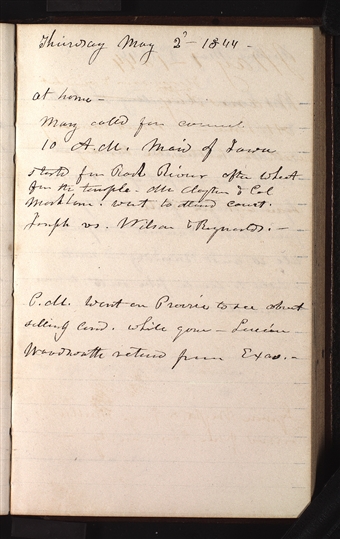 Thursday May 2d- 1844-
at home-
Many called for counsel.
10 A.M. Maid of Iowa
started for Rock River after wheat
for the temple. M Clayton & Col
Markham. went to attend court.
Joseph vs. Wilson & Reynolds.-
P.M. Went on Prairie to see about
selling land. while gone- Lucien
Woodworth retund from Texas.-